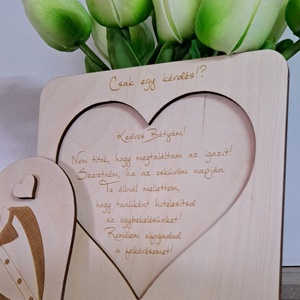 Csak egy kérdés!?
Kedves Bátyám!
Nem titok, hogy megtaláltam az igazit!
Szeretném, ha az esküvőm napján
Te állnál mellettem,
hogy tanúként hitelesítsd
az egybekelésünket!
Remélem elfogadod
a felkérésemet!